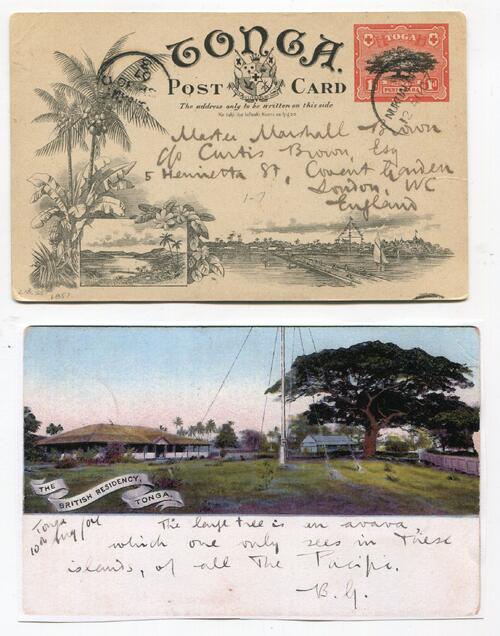 TONGA.
POST CARD
The address only to be written on this side
TOGA
1d
Master Marshall Brown
c/o Curtis Brown, Esq
5 Henrietta St, Covent Garden
London, WC
England
1-7
THE BRITISH RESIDENCY, TONGA.
Tonga
10th Aug/04
The large tree is an
which one only sees in these
islands, of all the Pacific.
B.G.